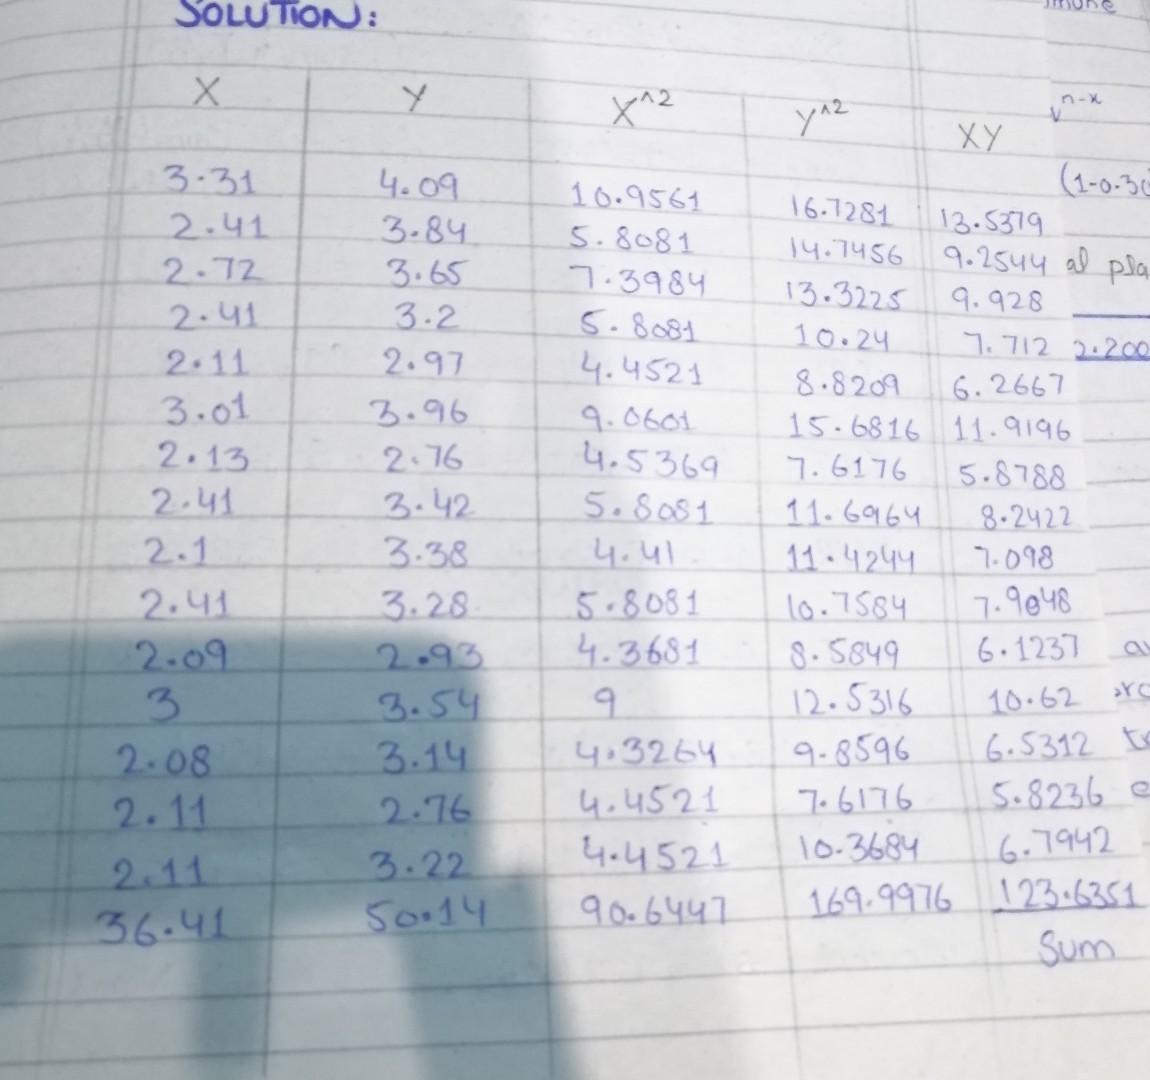 SOLUTION:
X Y X^2 Y^2 XY
3.31 4.09 10.9561 16.7281 13.5379
2.41 3.84 5.8081 14.7456 9.2544
2.72 3.65 7.3984 13.3225 9.928
2.41 3.2 5.8081 10.24 7.712
2.11 2.97 4.4521 8.8209 6.2667
3.01 3.96 9.0601 15.6816 11.9196
2.13 2.76 4.5369 7.6176 5.8788
2.41 3.42 5.8081 11.6964 8.2422
2.1 3.38 4.41 11.4244 7.098
2.41 3.28 5.8081 10.7584 7.9048
2.09 2.93 4.3681 8.5849 6.1237
3 3.54 9 12.5316 10.62
2.08 3.14 4.3264 9.8596 6.5312
2.11 2.76 4.4521 7.6176 5.8236
2.11 3.22 4.4521 10.3684 6.7942
36.41 50.14 90.6447 169.9976 123.6351
Sum
n-x
(1-0.30
al pla
2.200